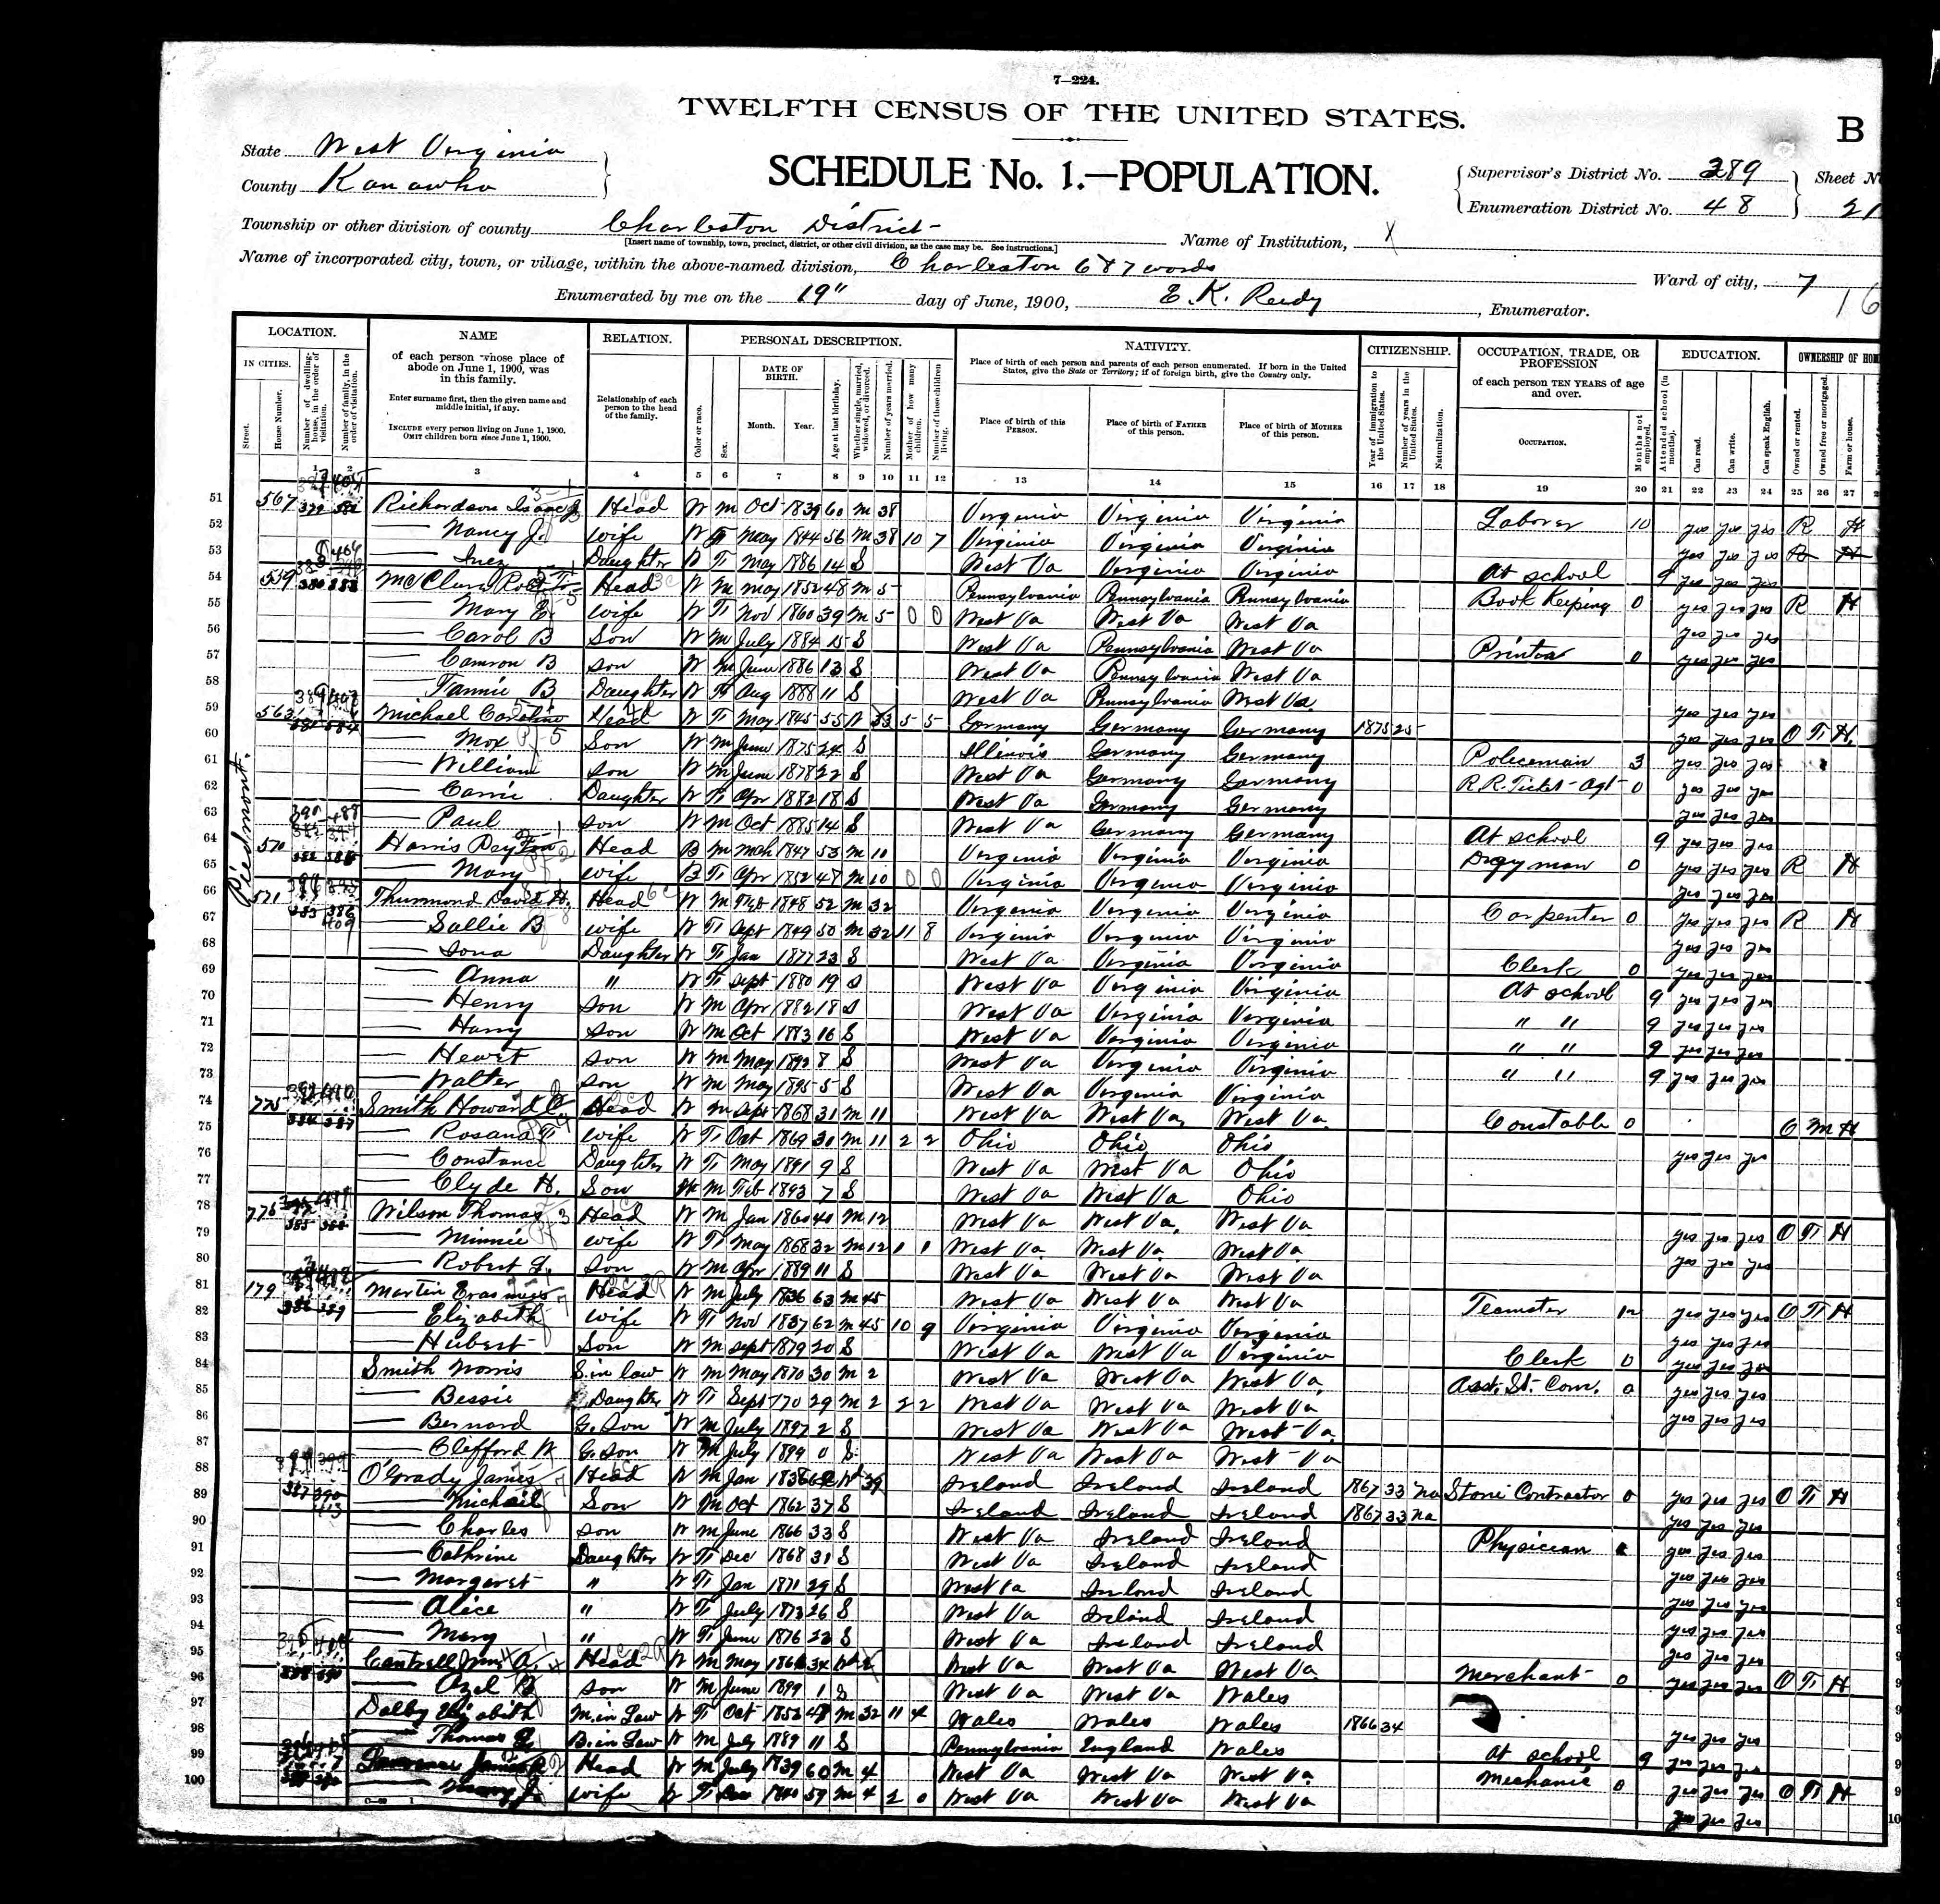 7—224.
TWELFTH CENSUS OF THE UNITED STATES.
B
State West Virginia
County Kanawha
SCHEDULE No. 1.—POPULATION.
Supervisor's District No. 289
Enumeration District No. 48
Sheet N
21
Township or other division of county Charleston District
[Insert name of township, town, precinct, district, or other civil division, as the case may be. See instructions.]
Name of Institution, X
Name of incorporated city, town, or village, within the above-named division, Charleston 6 & 7 words
Ward of city, 7
Enumerated by me on the 19" day of June, 1900, E. K. Reedy, Enumerator.
16
LOCATION. NAME RELATION. PERSONAL DESCRIPTION. NATIVITY. CITIZENSHIP. OCCUPATION, TRADE, OR PROFESSION EDUCATION. OWNERSHIP OF HOM
IN CITIES. Street. House Number. Number of dwelling-house, in the order of visitation. Number of family, in the order of visitation.
of each person whose place of abode on June 1, 1900, was in this family.
Enter surname first, then the given name and middle initial, if any.
INCLUDE every person living on June 1, 1900. OMIT children born since June 1, 1900.
Relationship of each person to the head of the family.
Color or race. Sex. DATE OF BIRTH. Month. Year. Age at last birthday. Whether single, married, widowed, or divorced. Number of years married. Mother of how many children. Number of these children living.
Place of birth of each person and parents of each person enumerated. If born in the United States, give the State or Territory; if of foreign birth, give the Country only.
Place of birth of this PERSON. Place of birth of FATHER of this person. Place of birth of MOTHER of this person.
Year of immigration to the United States. Number of years in the United States. Naturalization.
of each person TEN YEARS of age and over.
OCCUPATION. Months not employed.
Attended school (in months). Can read. Can write. Can speak English.
Owned or rented. Owned free or mortgaged. Farm or house.
1 2 3 4 5 6 7 8 9 10 11 12 13 14 15 16 17 18 19 20 21 22 23 24 25 26 27
Piedmont.
51 567 Richardson Isaac J Head W M Oct 1839 60 M 38 Virginia Virginia Virginia Laborer 10 yes yes yes R H
52 — Nancy J. wife W F May 1844 56 M 38 10 7 Virginia Virginia Virginia yes yes yes
53 — Inez Daughter W F May 1886 14 S West Va Virginia Virginia At school 9 yes yes yes
54 559 Head W M May 1852 48 M 5 Pennsylvania Pennsylvania Pennsylvania Book Keeping 0 yes yes yes R H
55 — Mary E. wife W F Nov 1860 39 M 5 0 0 West Va West Va West Va yes yes yes
56 — Carol B Son W M July 1884 15 S West Va Pennsylvania West Va Printer 0 yes yes yes
57 — Camron B son W M June 1886 13 S West Va Pennsylvania West Va
58 — Fannie B Daughter W F Aug 1888 11 S West Va Pennsylvania West Va yes yes yes
59 563 Michael Caroline Head W F May 1845 55 5 5 Germany Germany Germany 1875 25 yes yes yes O F H
60 — Max Son W M June 1875 24 S Illinois Germany Germany Policeman 3 yes yes yes
61 — William son W M June 1878 22 S West Va Germany Germany R.R. Ticket Agt 0 yes yes yes
62 — Carrie Daughter W F Apr 1882 18 S West Va Germany Germany yes yes yes
63 — Paul son W M Oct 1885 14 S West Va Germany Germany At school 9 yes yes yes
64 570 Harris Peyton Head B M Mch 1847 53 M 10 Virginia Virginia Virginia Drayman 0 yes yes yes R H
65 — Mary wife B F Apr 1852 48 M 10 0 0 Virginia Virginia Virginia yes yes yes
66 571 Thurmond David H. Head W M Feb 1848 52 M 32 Virginia Virginia Virginia Carpenter 0 yes yes yes R H
67 — Sallie B wife W F Sept 1849 50 M 32 11 8 Virginia Virginia Virginia yes yes yes
68 — Iona Daughter W F Jan 1877 23 S West Va Virginia Virginia Clerk 0 yes yes yes
69 — Anna " W F Sept 1880 19 S West Va Virginia Virginia At school 9 yes yes yes
70 — Henry son W M Apr 1882 18 S West Va Virginia Virginia " " 9 yes yes yes
71 — Harry son W M Oct 1883 16 S West Va Virginia Virginia " " 9 yes yes yes
72 — Hewet son W M May 1892 8 S West Va Virginia Virginia " " 9 yes yes yes
73 — Walter son W M May 1895 5 S West Va Virginia Virginia
74 775 Smith Howard Head W M Sept 1868 31 M 11 West Va West Va West Va Constable 0 O M H
75 — Rosana F wife W F Oct 1869 30 M 11 2 2 Ohio Ohio Ohio yes yes yes
76 — Constance Daughter W F May 1891 9 S West Va West Va Ohio
77 — Clyde H. Son W M Feb 1893 7 S West Va West Va Ohio
78 776 Wilson Thomas Head W M Jan 1860 40 M 12 West Va West Va West Va yes yes yes O F H
79 — Minnie wife W F May 1868 32 M 12 1 1 West Va West Va West Va yes yes yes
80 — Robert L. Son W M Apr 1889 11 S West Va West Va West Va
81 179 Martin Erasmus Head W M July 1836 63 M 45 West Va West Va West Va Teamster 12 yes yes yes O F H
82 — Elizabeth wife W F Nov 1837 62 M 45 10 9 Virginia Virginia Virginia yes yes yes
83 — Hubert Son W M Sept 1879 20 S West Va West Va Virginia Clerk 0 yes yes yes
84 Smith Norris S. in law W M May 1870 30 M 2 West Va West Va West Va Asst. St. Com. 0 yes yes yes
85 — Bessie Daughter W F Sept 70 29 M 2 2 2 West Va West Va West Va yes yes yes
86 — Bernard G. Son W M July 1897 2 S West Va West Va West Va
87 — Clifford G. Son W M July 1899 0 S West Va West Va West Va
88 O'Grady James Head W M Jan 1836 64 Wd Ireland Ireland Ireland 1867 33 Na Stone Contractor 0 yes yes yes O F H
89 — Michail Son W M Oct 1862 37 S Ireland Ireland Ireland 1867 33 Na yes yes yes
90 — Charles son W M June 1866 33 S West Va Ireland Ireland Physician yes yes yes
91 — Cathrine Daughter W F Dec 1868 31 S West Va Ireland Ireland yes yes yes
92 — Margaret " W F Jan 1871 29 S West Va Ireland Ireland yes yes yes
93 — Alice " W F July 1873 26 S West Va Ireland Ireland yes yes yes
94 — Mary " W F June 1876 23 S West Va Ireland Ireland yes yes yes
95 Cantrell Wm A Head W M May 34 Wd West Va West Va West Va Merchant 0 yes yes yes O F H
96 — Azel son W M June 1899 1 S West Va West Va Wales
97 Dalby Elizabith M. in Law W F Oct 1852 M 32 11 4 Wales Wales Wales 1866 34 yes yes yes
98 — Thomas B. in Law W M July 1889 11 S Pennsylvania England Wales At school 9 yes yes yes
99 James Head W M July 1839 60 M 4 West Va West Va West Va Mechanic 0 yes yes yes O F H
100 — wife W F 1840 59 M 4 2 0 West Va West Va West Va yes yes yes